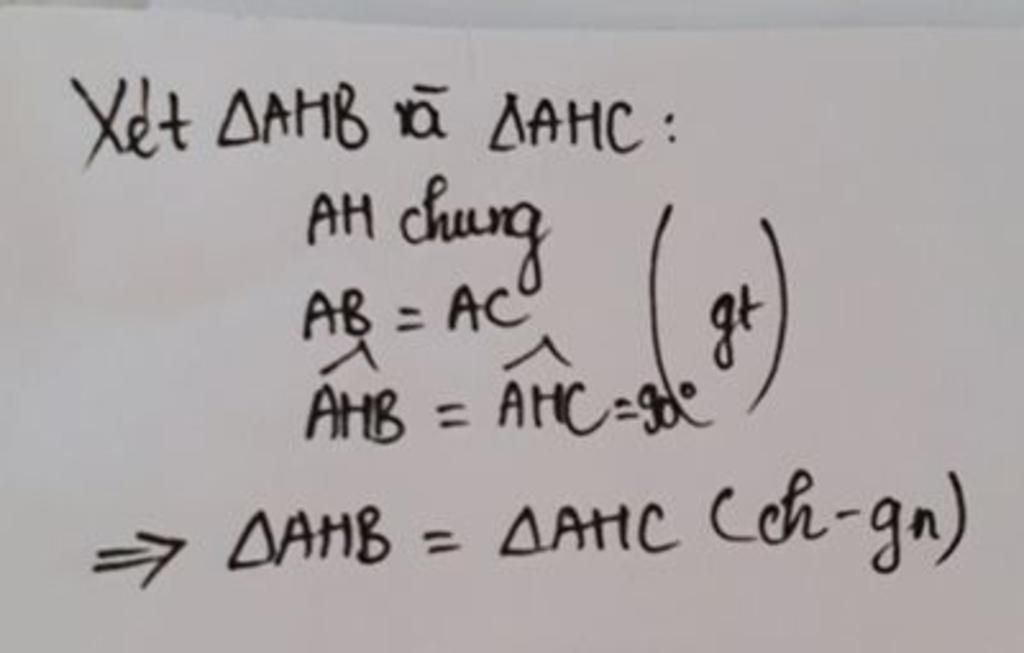 Xét ΔAHB và ΔAHC :
AH chung
AB = AC (gt)
\widehat{AHB} = \widehat{AHC} = 90°
⇒ ΔAHB = ΔAHC (ch-gn)